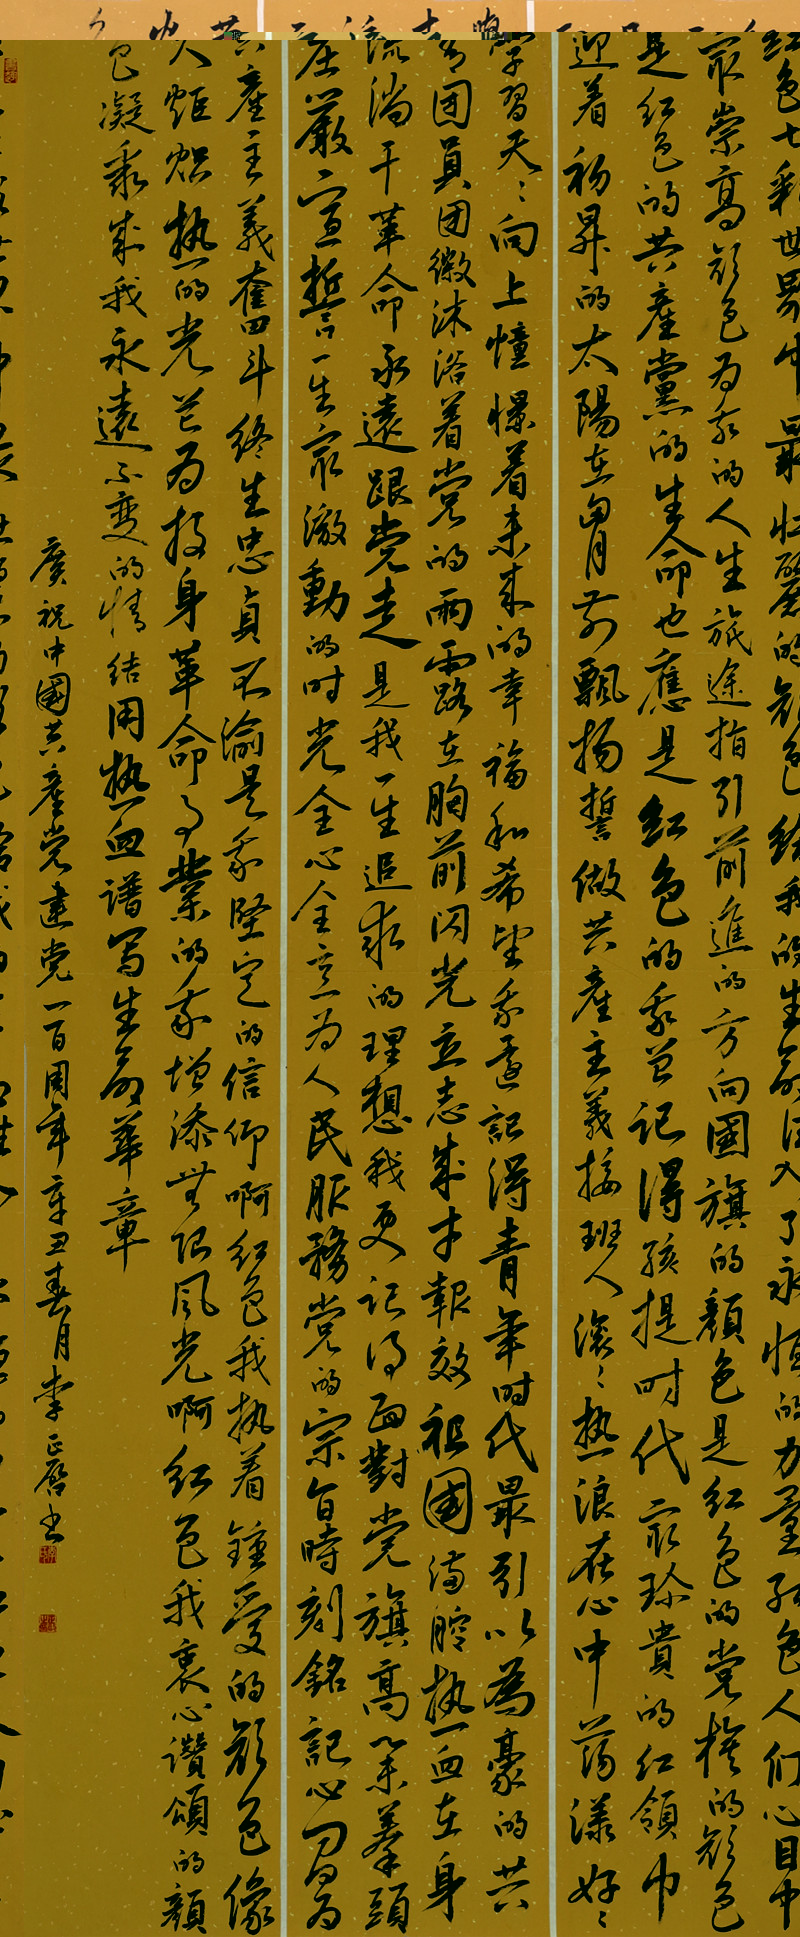 红色七彩世界中最壮丽的颜色给我的生命注入了永恒的力量红色人们心目中
最崇高颜色为我的人生旅途指引前進的方向國旗的顏色是红色的党旗的颜色
是红色的共產黨的生命也應是红色的我曾记得孩提时代最珍貴的红領巾
迎着初昇的太陽在胃前飄扬誓做共產主義接班人滚滚热浪在心中荡漾好好
學習天天向上憧憬着未来的幸福和希望我還記得青年时代最引以為豪的共
青团員团徽沐浴着党的雨露在胸前闪光立志成才報效祖國满腔热血在身
流淌干革命永遠跟党走是我一生追求的理想我更记得面對党旗高举拳頭
庄严宣誓一生最激動的时光全心全意为人民服務党的宗旨時刻銘記心间为
共產主義奮斗终生忠貞不渝是我堅定的信仰啊红色我执着鍾爱的颜色像
火炬炽热的光芒为投身革命事業的我增添無限风光啊红色我衷心讚頌的顏
色凝聚成我永遠不变的情结用热血谱写生命華章
慶祝中國共產党建党一百周年辛丑春月李正啓书